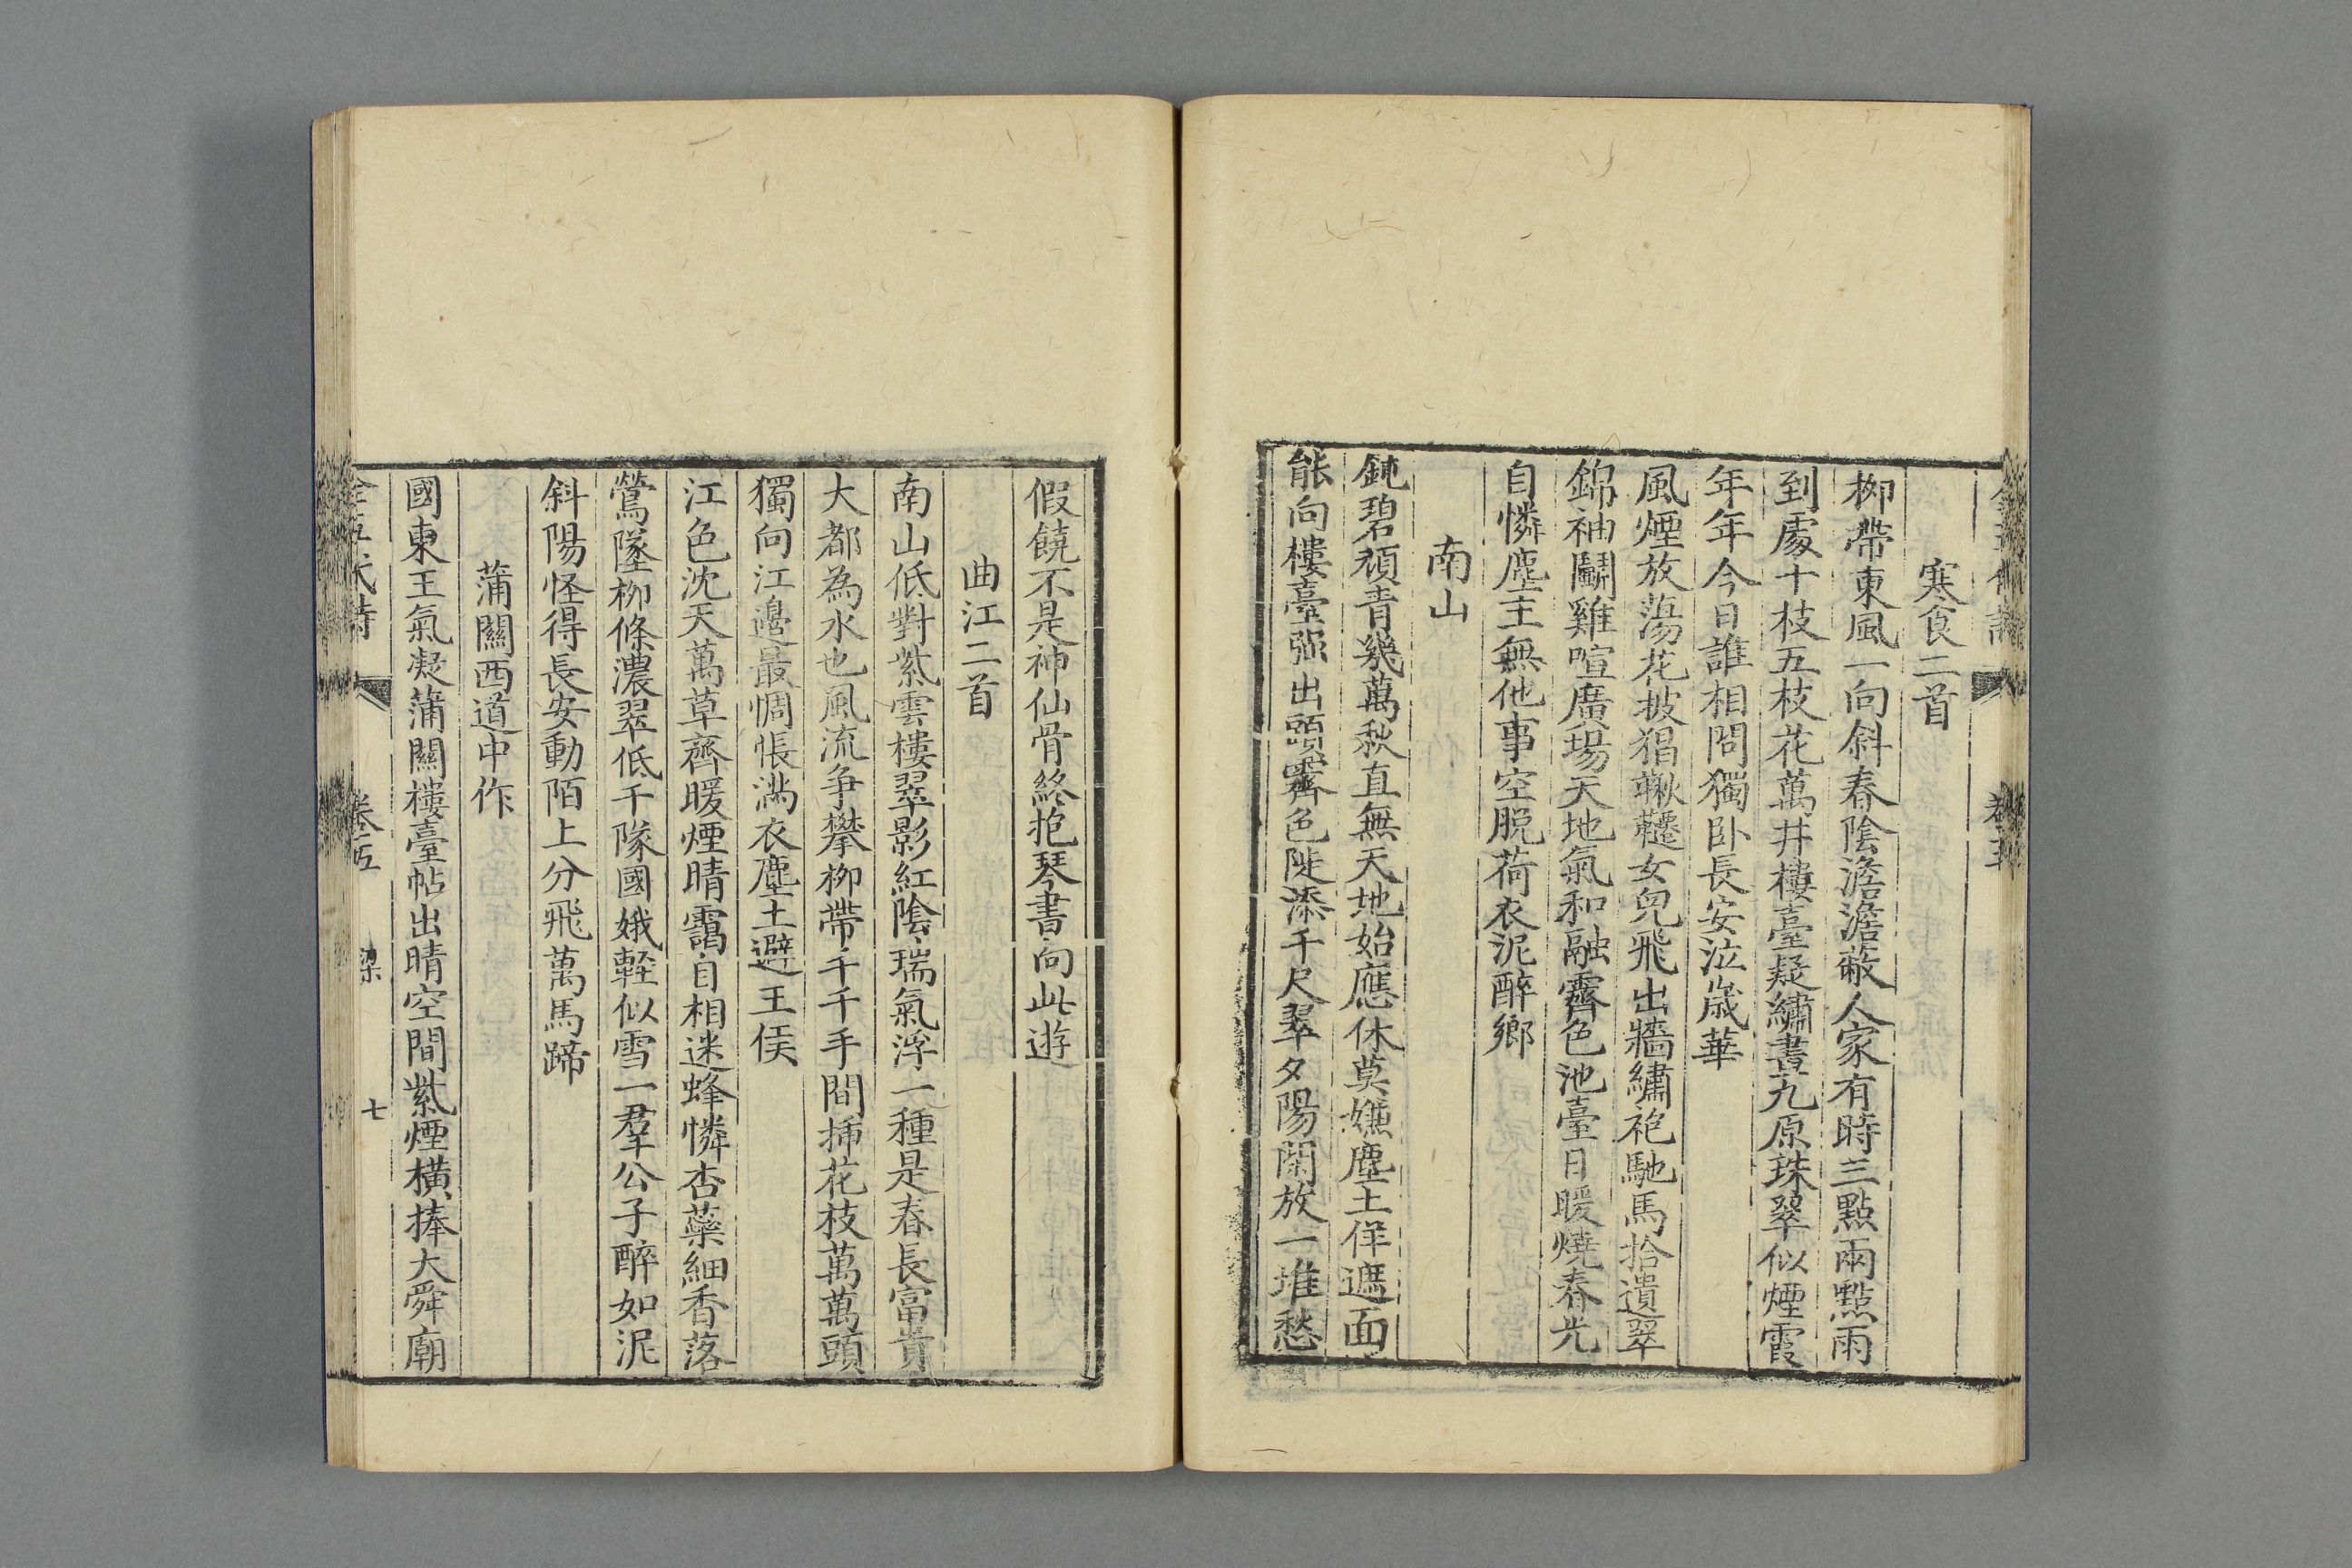 寒食二首
柳帶東風一向斜春陰澹澹蔽人家有時三點兩點雨
到處十枝五枝花萬井樓臺疑繡畫九原珠翠似煙霞
年年今日誰相問獨卧長安泣歲華
風煙放蕩花披猖鞦韆女兒飛出牆繡袍馳馬拾遺翠
錦袖鬬雞喧廣場天地氣和融霽色池臺日暖燒春光
自憐塵土無他事空脫荷衣泥醉鄉
南山
鈍碧頑青幾萬秋直無天地始應休莫嫌塵土佯遮面
能向樓臺强出頭霽色陡添千尺翠夕陽閑放一堆愁
假饒不是神仙骨終抱琴書向此遊
曲江二首
南山低對紫雲樓翠影紅陰瑞氣浮一種是春長富貴
大都為水也風流争攀柳帶千千手間揷花枝萬萬頭
獨向江邊最惆悵滿衣塵土避王侯
江色沈天萬草齊暖煙晴靄自相迷蜂憐杏蘂細香落
鶯墜柳條濃翠低千隊國娥輕似雪一羣公子醉如泥
斜陽怪得長安動陌上分飛萬馬蹄
蒲關西道中作
國東王氣凝蒲關樓臺帖出晴空間紫煙橫捧大舜廟
卷五 梁 七